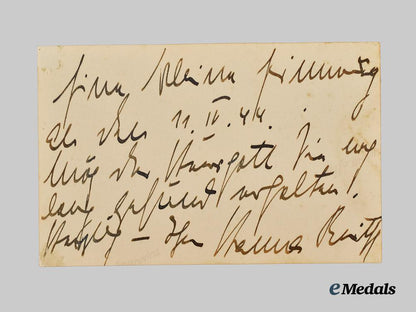 Eine kleine Erinnerung
an den 11. IV. 44.
Mög der Herrgott Sie noch
lang gesund erhalten.
– Ihre Hanna Reitsch
eMedals